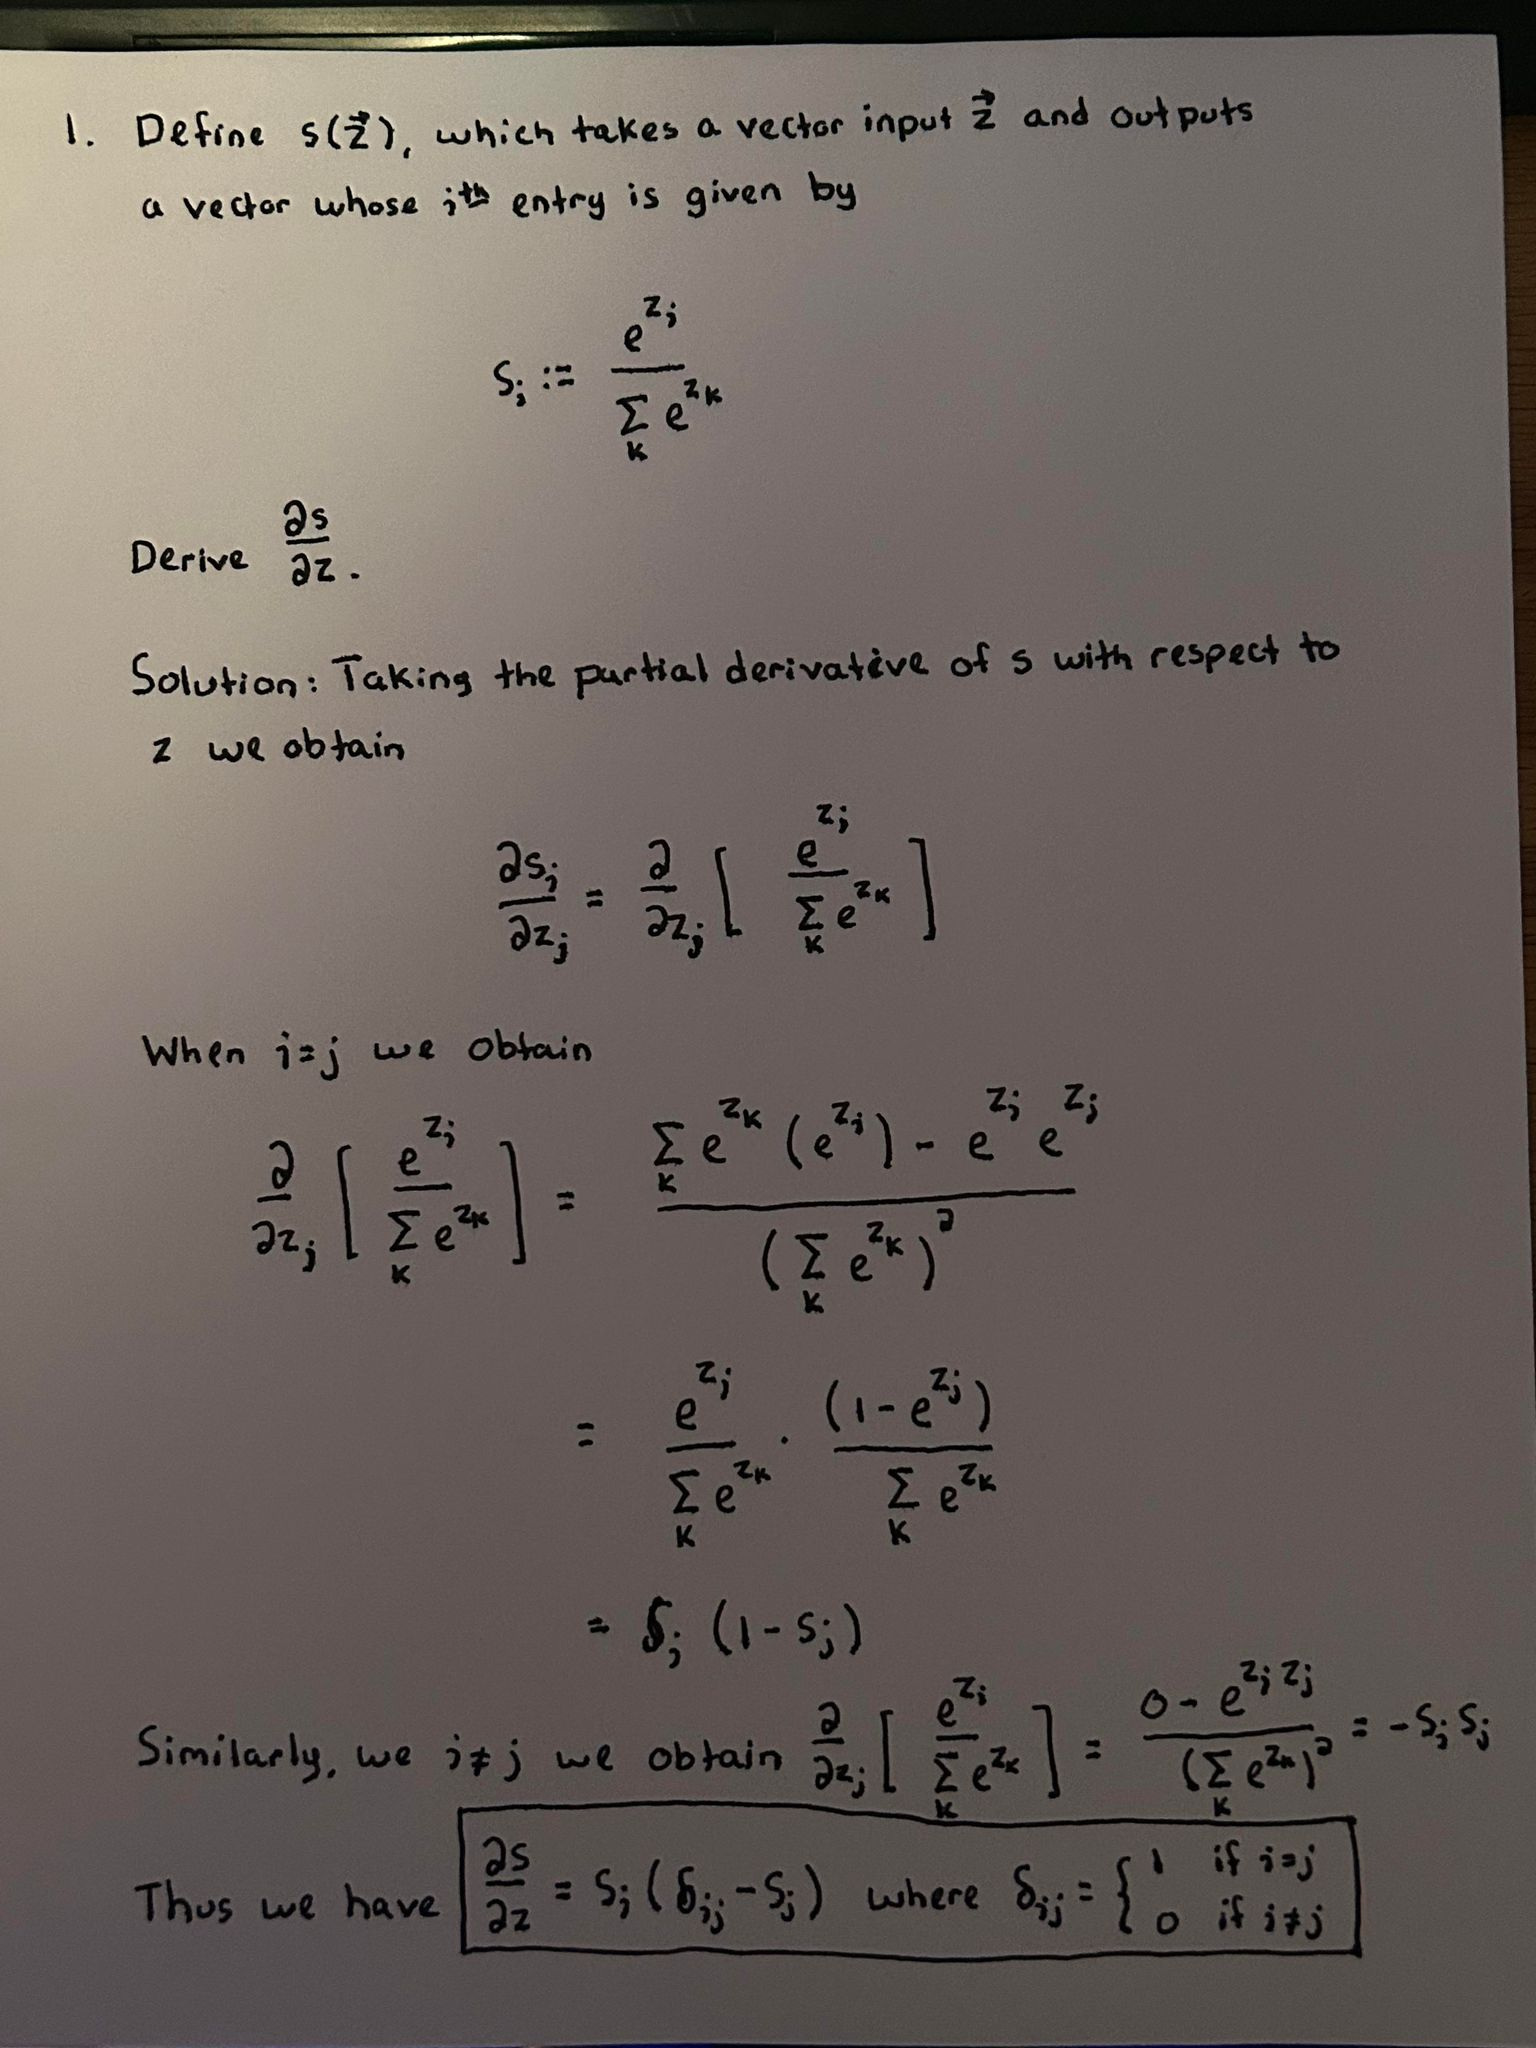 1. Define s(z⃗), which takes a vector input z⃗ and outputs
a vector whose iᵗʰ entry is given by
Sᵢ := e^{zᵢ} / Σ_k e^{z_k}
Derive ∂s/∂z.
Solution: Taking the partial derivative of s with respect to
z we obtain
∂sᵢ/∂zⱼ = ∂/∂zⱼ [ e^{zᵢ} / Σ_k e^{z_k} ]
When i=j we obtain
∂/∂zⱼ [ e^{zᵢ} / Σ_k e^{z_k} ] = ( Σ_k e^{z_k} (e^{zᵢ}) - e^{zᵢ} e^{zⱼ} ) / ( Σ_k e^{z_k} )²
= e^{zᵢ} / Σ_k e^{z_k} · (1 - e^{zⱼ}) / Σ_k e^{z_k}
= Sᵢ (1 - Sⱼ)
Similarly, we i≠j we obtain ∂/∂zⱼ [ e^{zᵢ} / Σ_k e^{z_k} ] = ( 0 - e^{zᵢ zⱼ} ) / ( Σ_k e^{z_k} )² = -Sᵢ Sⱼ
Thus we have ∂s/∂z = Sᵢ (δᵢⱼ - Sⱼ) where δᵢⱼ = { 1 if i=j
0 if i≠j